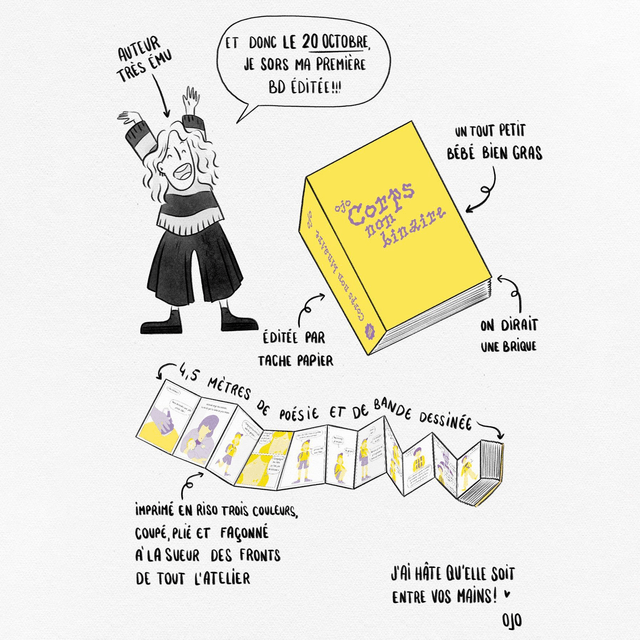 AUTEUR
TRÈS ÉMU
ET DONC LE 20 OCTOBRE,
JE SORS MA PREMIÈRE
BD ÉDITÉE!!!
UN TOUT PETIT
BÉBÉ BIEN GRAS
OJO
Corps
non
binaire
OJO
Corps non binaire
ÉDITÉE PAR
TACHE PAPIER
ON DIRAIT
UNE BRIQUE
4,5 MÈTRES DE POÉSIE ET DE BANDE DESSINÉE
IMPRIMÉ EN RISO TROIS COULEURS,
COUPÉ, PLIÉ ET FAÇONNÉ
A LA SUEUR DES FRONTS
DE TOUT L'ATELIER
J'AI HÂTE QU'ELLE SOIT
ENTRE VOS MAINS! ♥
OJO